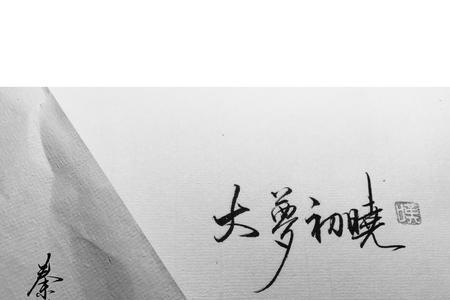 大夢初曉
秦